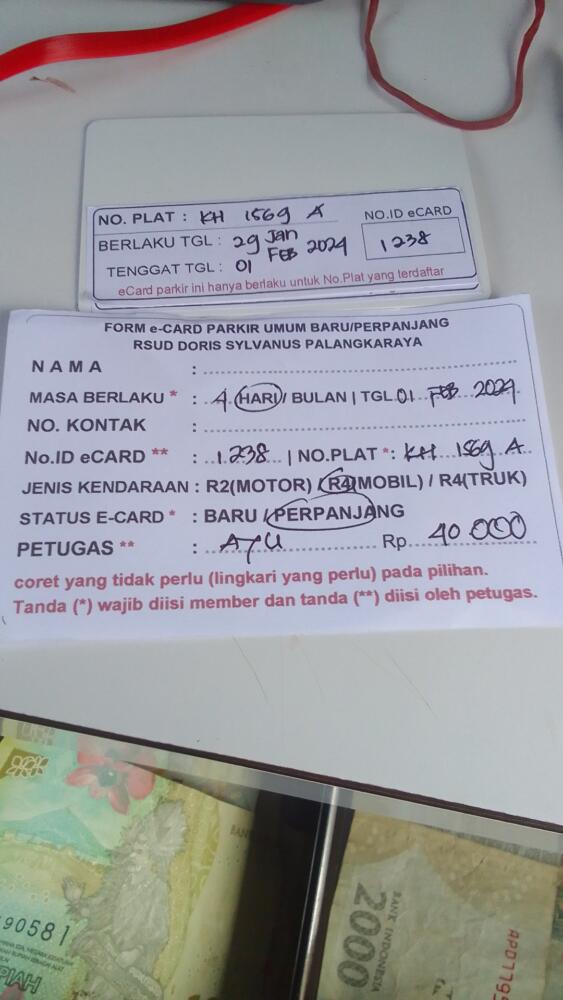 NO. PLAT : KH 1569 A
NO.ID eCARD
BERLAKU TGL : 29 Jan
1238
TENGGAT TGL : 01 FEB 2024
eCard parkir ini hanya berlaku untuk No.Plat yang terdaftar
FORM e-CARD PARKIR UMUM BARU/PERPANJANG
RSUD DORIS SYLVANUS PALANGKARAYA
N A M A :
MASA BERLAKU * : 4 HARI / BULAN | TGL 01 FEB 2024
NO. KONTAK :
No.ID eCARD ** : 1238 | NO.PLAT *: KH 1569 A
JENIS KENDARAAN : R2(MOTOR) / R4(MOBIL) / R4(TRUK)
STATUS E-CARD * : BARU / PERPANJANG
PETUGAS ** : AYU Rp 40.000
coret yang tidak perlu (lingkari yang perlu) pada pilihan.
Tanda (*) wajib diisi member dan tanda (**) diisi oleh petugas.
90581
PIAH
BANK INDONESIA
2000